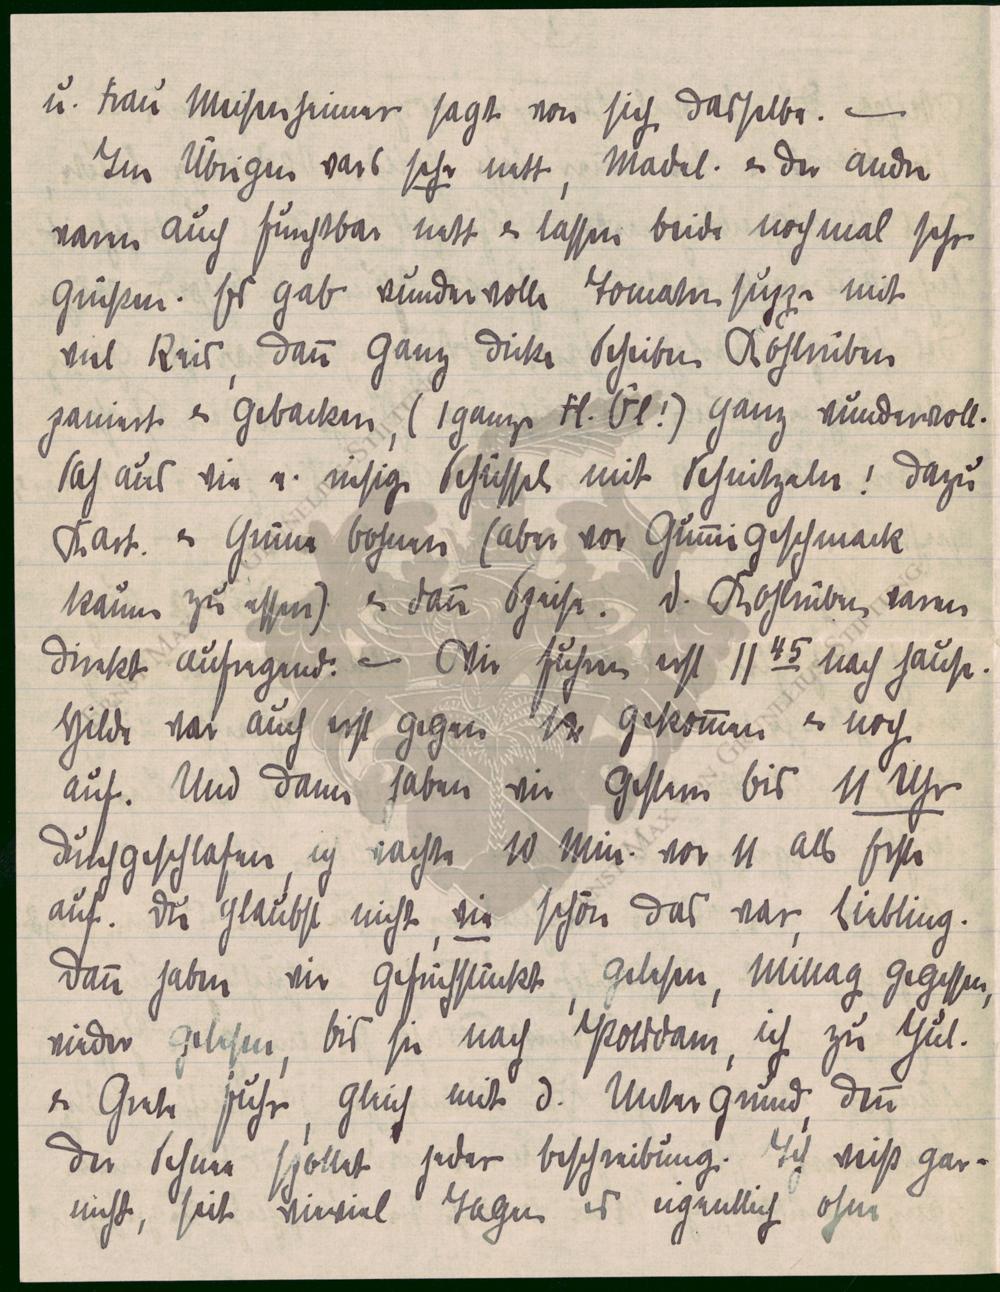 u. Frau Meisenheimer sagt von sich dasselbe. —
Im Übrigen wars sehr nett, Madel. & der andre
waren auch furchtbar nett & lassen beide nochmal sehr
grüßen. Es gab wundervolle Tomatensuppe mit
viel Reis, dañ ganz dicke Scheiben Kohlrüben
paniert & gebacken, (1 ganze Fl. Öl!) ganz wundervoll.
Sah aus wie e. riesige Schüssel mit Schnitzeln! Dazu
Kart. & Grüne bohnen (aber vor Gum̄igeschmack
kaum zu essen) & dañ Speise. d. Kohlrüben waren
direkt aufregend. — Wir fuhren erst 11 45 nach hause.
Hilde war auch erst gegen gekom̄en & noch
auf. Und dann haben wir gestern bis 11 Uhr
durchgeschlafen, ich wachte 10 Min. vor 11 als Erste
auf. Du glaubst nicht, wie schön das war, Liebling.
Dañ haben wir gefrühstückt, gelesen, Mittag gegessen,
wieder gelesen, bis sie nach Potsdam, ich zu Jul.
& Grete fuhr, gleich mit d. Untergrund, deñ
der Schnee spottet jeder beschreibung. Ich weiß gar-
nicht, seit wieviel Tagen es eigentlich ohne
ERNST MAX VON GRUNELIUS-STIFTUNG
ERNST MAX VON GRUNELIUS-STIFTUNG